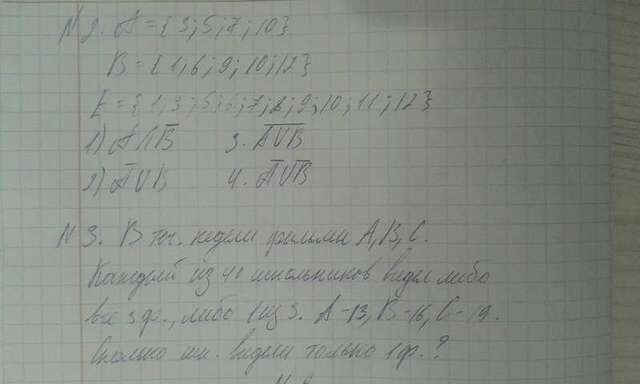 № 2. A = {3; 5; 7; 10}
B = {1; 6; 9; 10; 12}
E = {1; 3; 5; 6; 7; 8; 9; 10; 11; 12}
1) A ∩ B̅ 3. A̅ ̅∪̅ ̅B̅
2) A̅ ∪ B 4. A̅ ∪ B̅
№ 3. В теч. недели фильмы A, B, C.
Каждый из 40 школьников видел либо
все 3 ф., либо 1 из 3. A - 13, B - 16, C - 19.
Сколько шк. видели только 1 ф.?